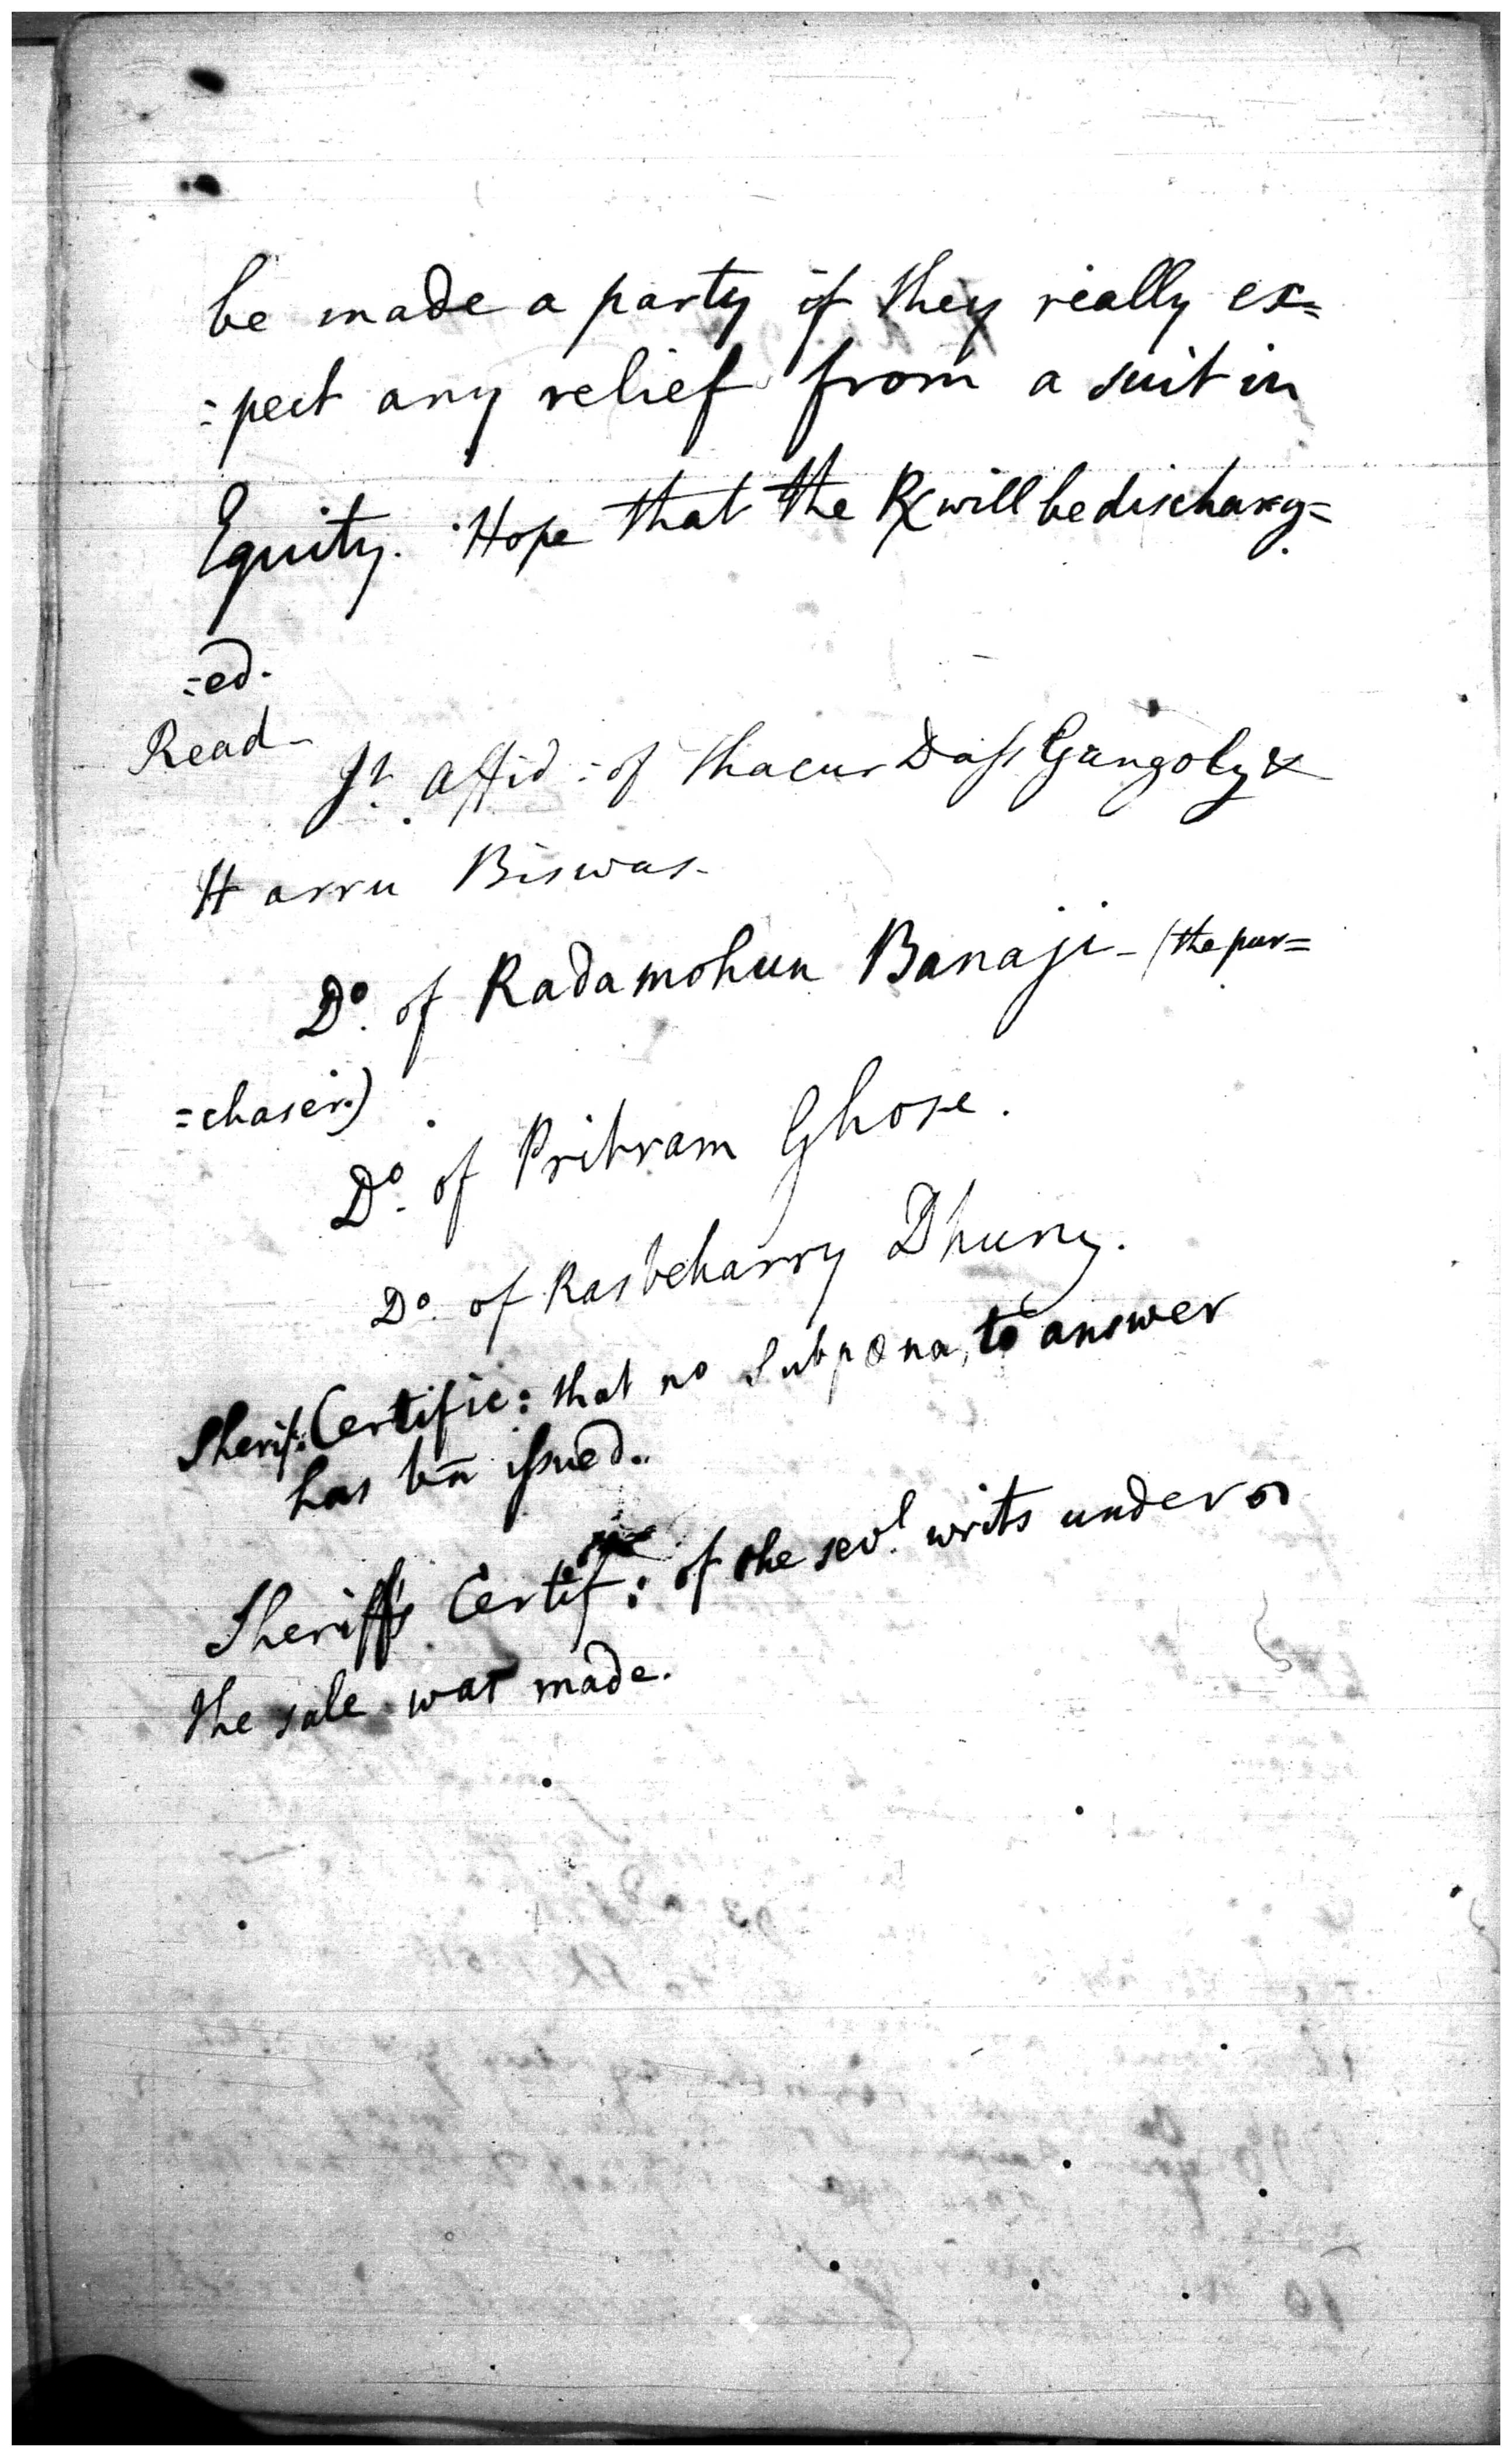 be made a party if they really ex=
=pect any relief from a suit in
Equity. Hope that the R will be discharg=
=ed.
Read-
Jt. Affid: of Thacur Dass Gangoly &
Harru Biswas.
Do. of Radamohun Banaji - (the pur=
=chaser.)
Do. of Pritram Ghose.
Do. of Rasbeharry Dhury.
Sherif: Certific: that no Subpœna, to answer
has bn issued..
Sheriff's Certif: of the sevl. writs under
the sale was made.